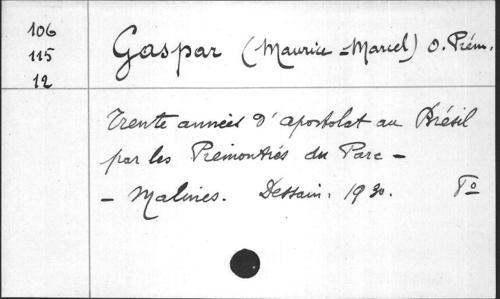 106
115
12
Gaspar (Maurice-Marcel) O. Prém.
Trente années d'apostolat au Brésil
par les Prémontrés du Parc -
- Malines. Dessain. 1930. Fo